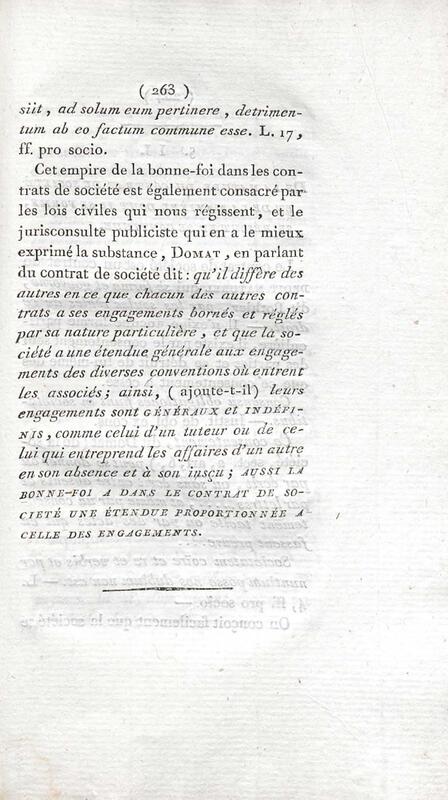 ( 263 )
siit, ad solum eum pertinere, detrimen-
tum ab eo factum commune esse. L. 17,
ff. pro socio.
Cet empire de la bonne-foi dans les con-
trats de société est également consacré par
les lois civiles qui nous régissent, et le
jurisconsulte publiciste qui en a le mieux
exprimé la substance, DOMAT, en parlant
du contrat de société dit : qu'il diffère des
autres en ce que chacun des autres con-
trats a ses engagements bornés et réglés
par sa nature particulière, et que la so-
ciété a une étendue générale aux engage-
ments des diverses conventions où entrent
les associés; ainsi, ( ajoute-t-il) leurs
engagements sont GÉNÉRAUX et INDÉFI-
NIS, comme celui d'un tuteur ou de ce-
lui qui entreprend les affaires d'un autre
en son absence et à son insçu; AUSSI LA
BONNE-FOI A DANS LE CONTRAT DE SO-
CIETÉ UNE ÉTENDUE PROPORTIONNÉE A
CELLE DES ENGAGEMENTS.